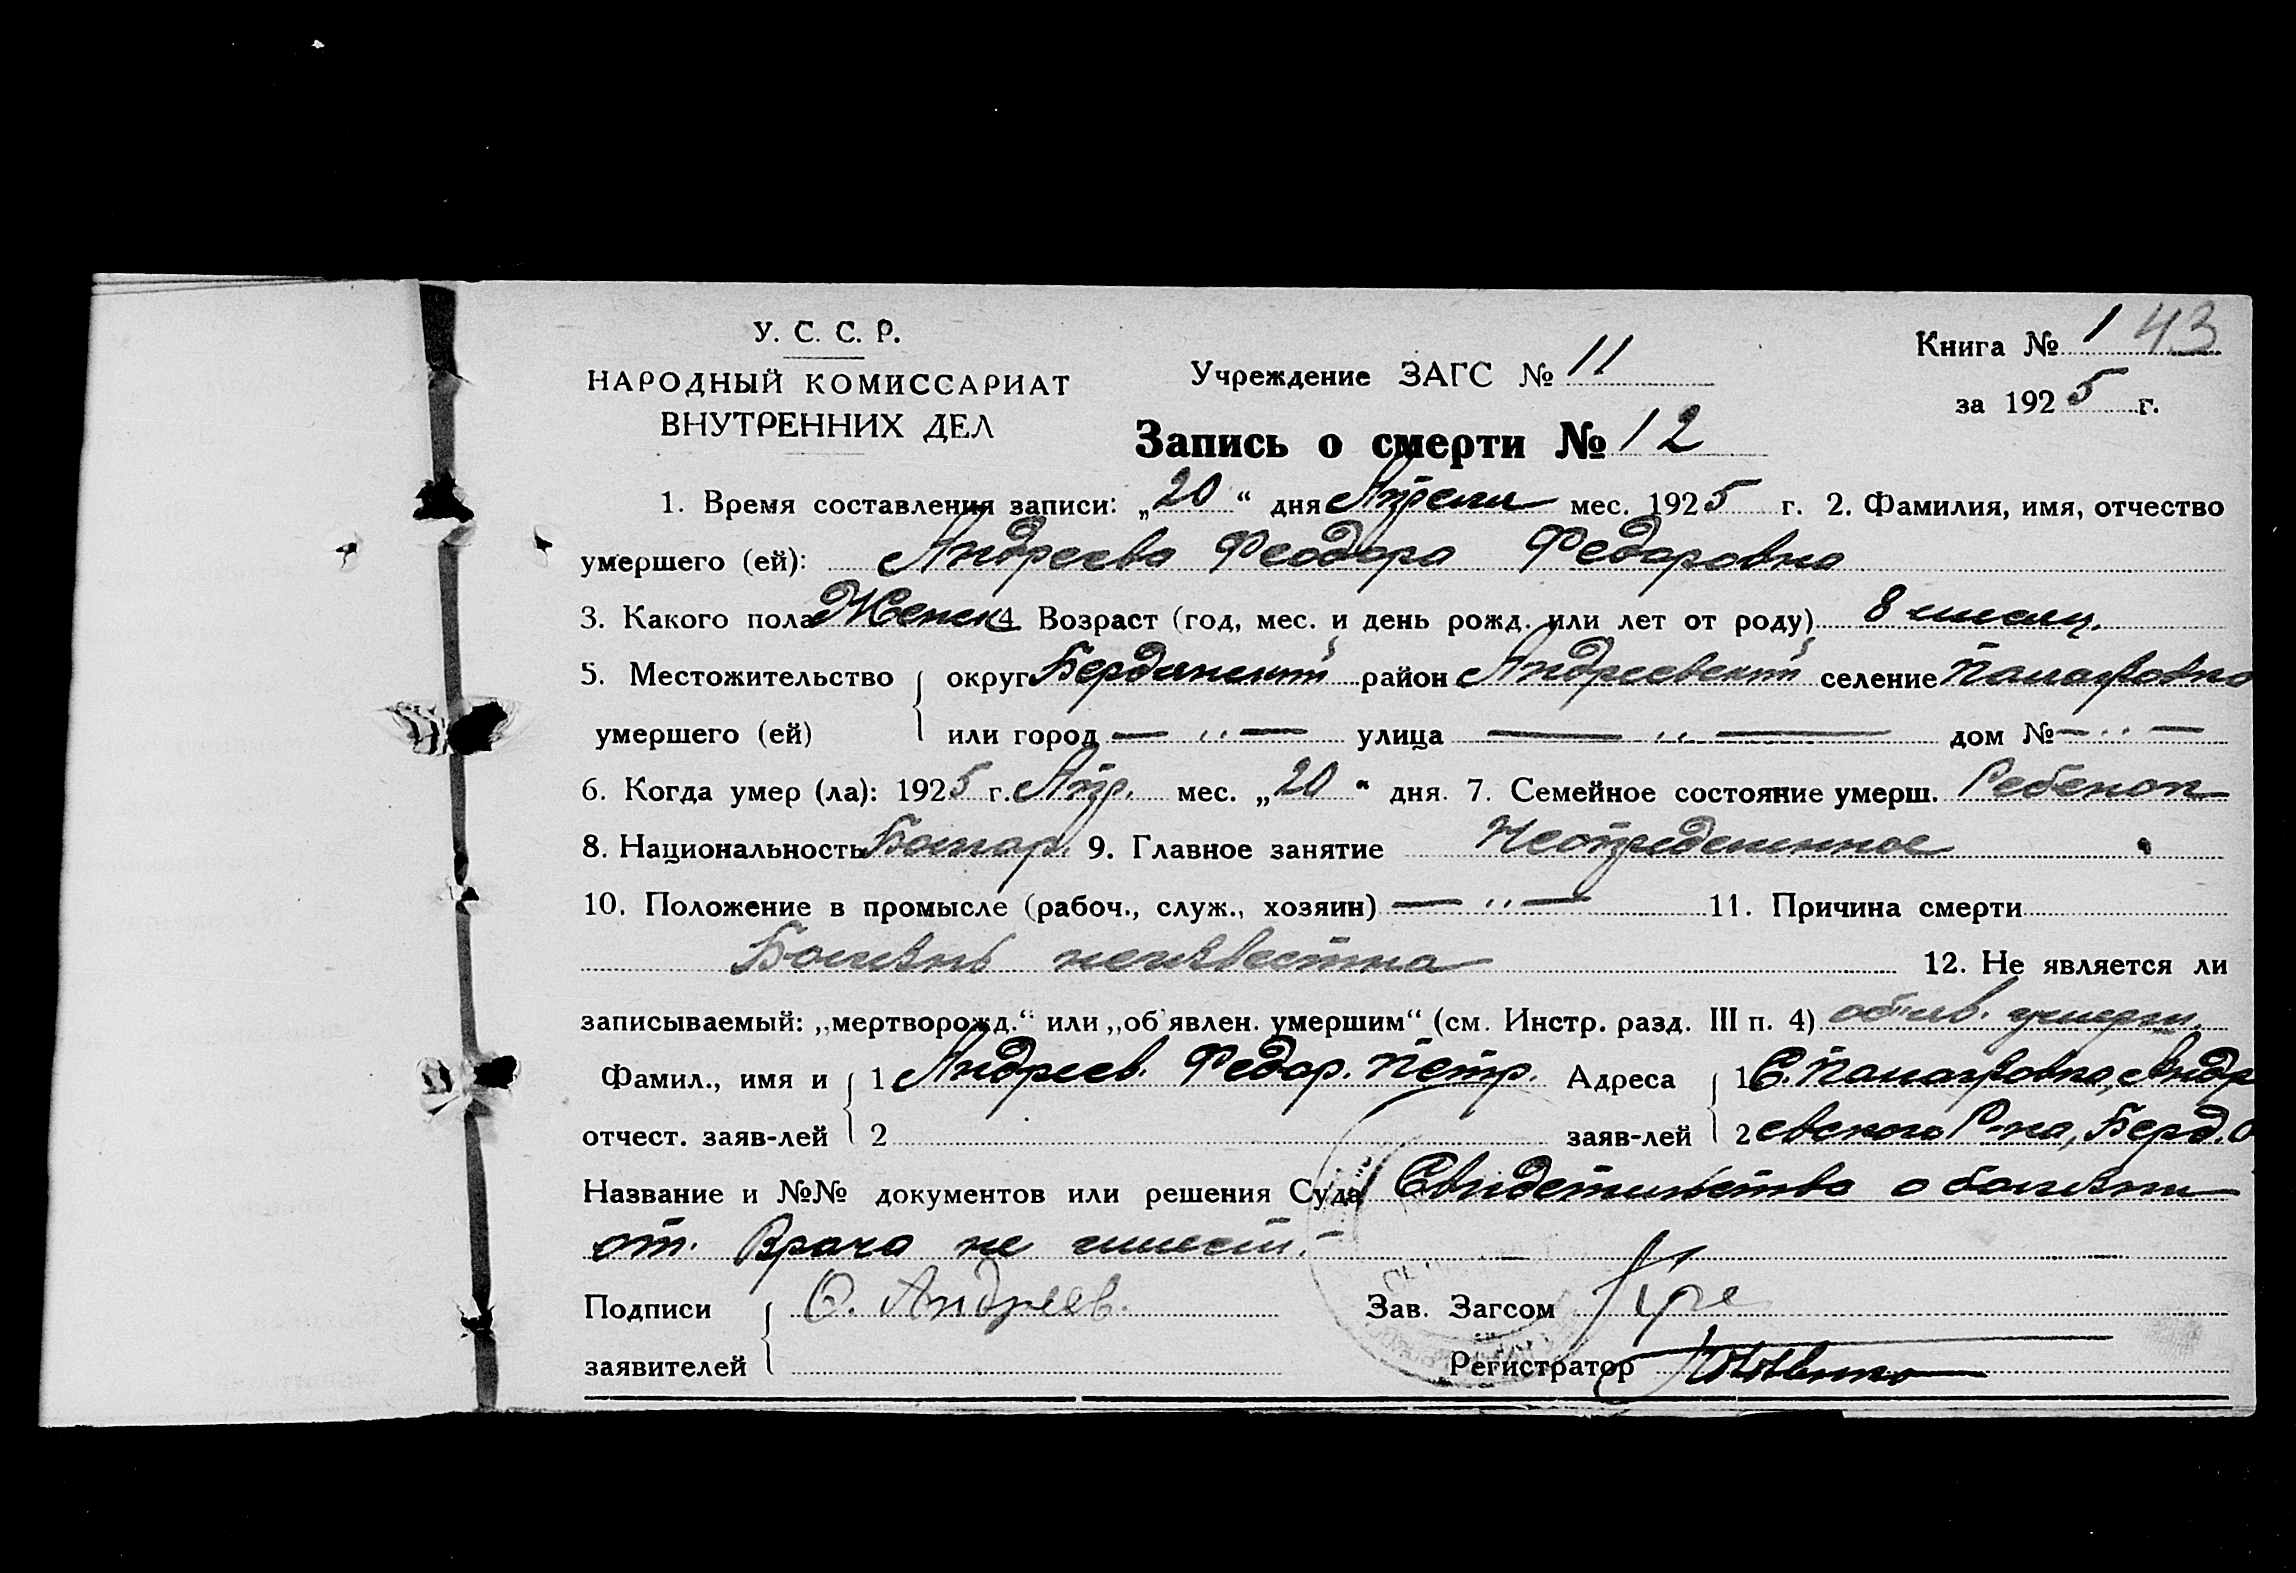 У. С. С. Р.
НАРОДНЫЙ КОМИССАРИАТ
ВНУТРЕННИХ ДЕЛ
Учреждение ЗАГС № 11
Книга № 1 43
за 1925 г.
Запись о смерти № 12
1. Время составления записи: „20“ дня Апреля мес. 1925 г. 2. Фамилия, имя, отчество
умершего (ей): Андреева Феодора Федоровна
3. Какого пола Женск 4 Возраст (год, мес. и день рожд. или лет от роду) 8 месяц.
5. Местожительство округ Бердянский район Андреевский селение Паналовка
умершего (ей) или город — „ — улица — „ — дом № — „ —
6. Когда умер (ла): 1925 г. Апр. мес. „20“ дня. 7. Семейное состояние умерш. Ребенок
8. Национальность Болгар. 9. Главное занятие Неопределенное
10. Положение в промысле (рабоч., служ., хозяин) — „ — 11. Причина смерти
Болезнь неизвестна 12. Не является ли
записываемый: „мертворожд.“ или „об'явлен. умершим“ (см. Инстр. разд. III п. 4) умерш.
Фамил., имя и 1 Андреев. Федор. Петр. Адреса 1 С. Андр
отчест. заяв-лей 2 заяв-лей 2 евского Р-на, Берд. О
Название и №№ документов или решения Суда Свидетельства о болезни
от Врача не имеет.
Подписи Ф. Андреев. Зав. Загсом
заявителей Регистратор